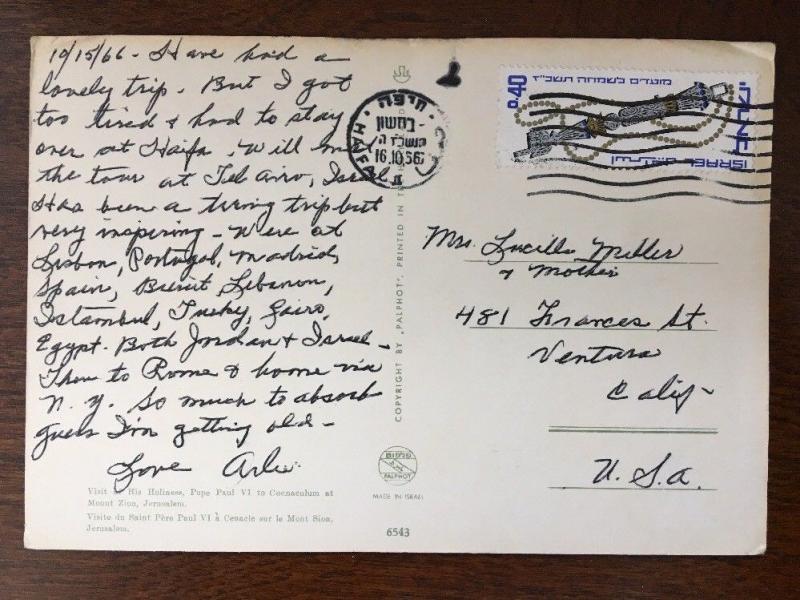 10/15/66 - Have had a
lovely trip. But I got
too tired & had to stay
over at Haifa. Will meet
the tour at Tel Aviv, Israel
Has been a tiring trip but
very inspiring - Were at
Lisbon, Portugal, Madrid,
Spain, Beirut Lebanon,
Istambul, Turkey, Cairo,
Egypt. Both Jordan & Israel -
Then to Rome & home via
N.Y. So much to absorb
guess I'm getting old -
Love
Visit of His Holiness, Pope Paul VI to Coenaculum at
Mount Zion, Jerusalem.
Visite du Saint Père Paul VI à Cenacle sur le Mont Sion,
Jerusalem.
COPYRIGHT BY „PALPHOT", PRINTED IN THE
פלפוט
PALPHOT
MADE IN ISRAEL
6543
חיפה
HAIFA
16.10.56
0.40
מועדים לשמחה תשכ"ז
ישראל
ISRAEL
Mrs. Lucille Miller
& Mother
481 Frances St.
Ventura
Calif -
U.S.A.